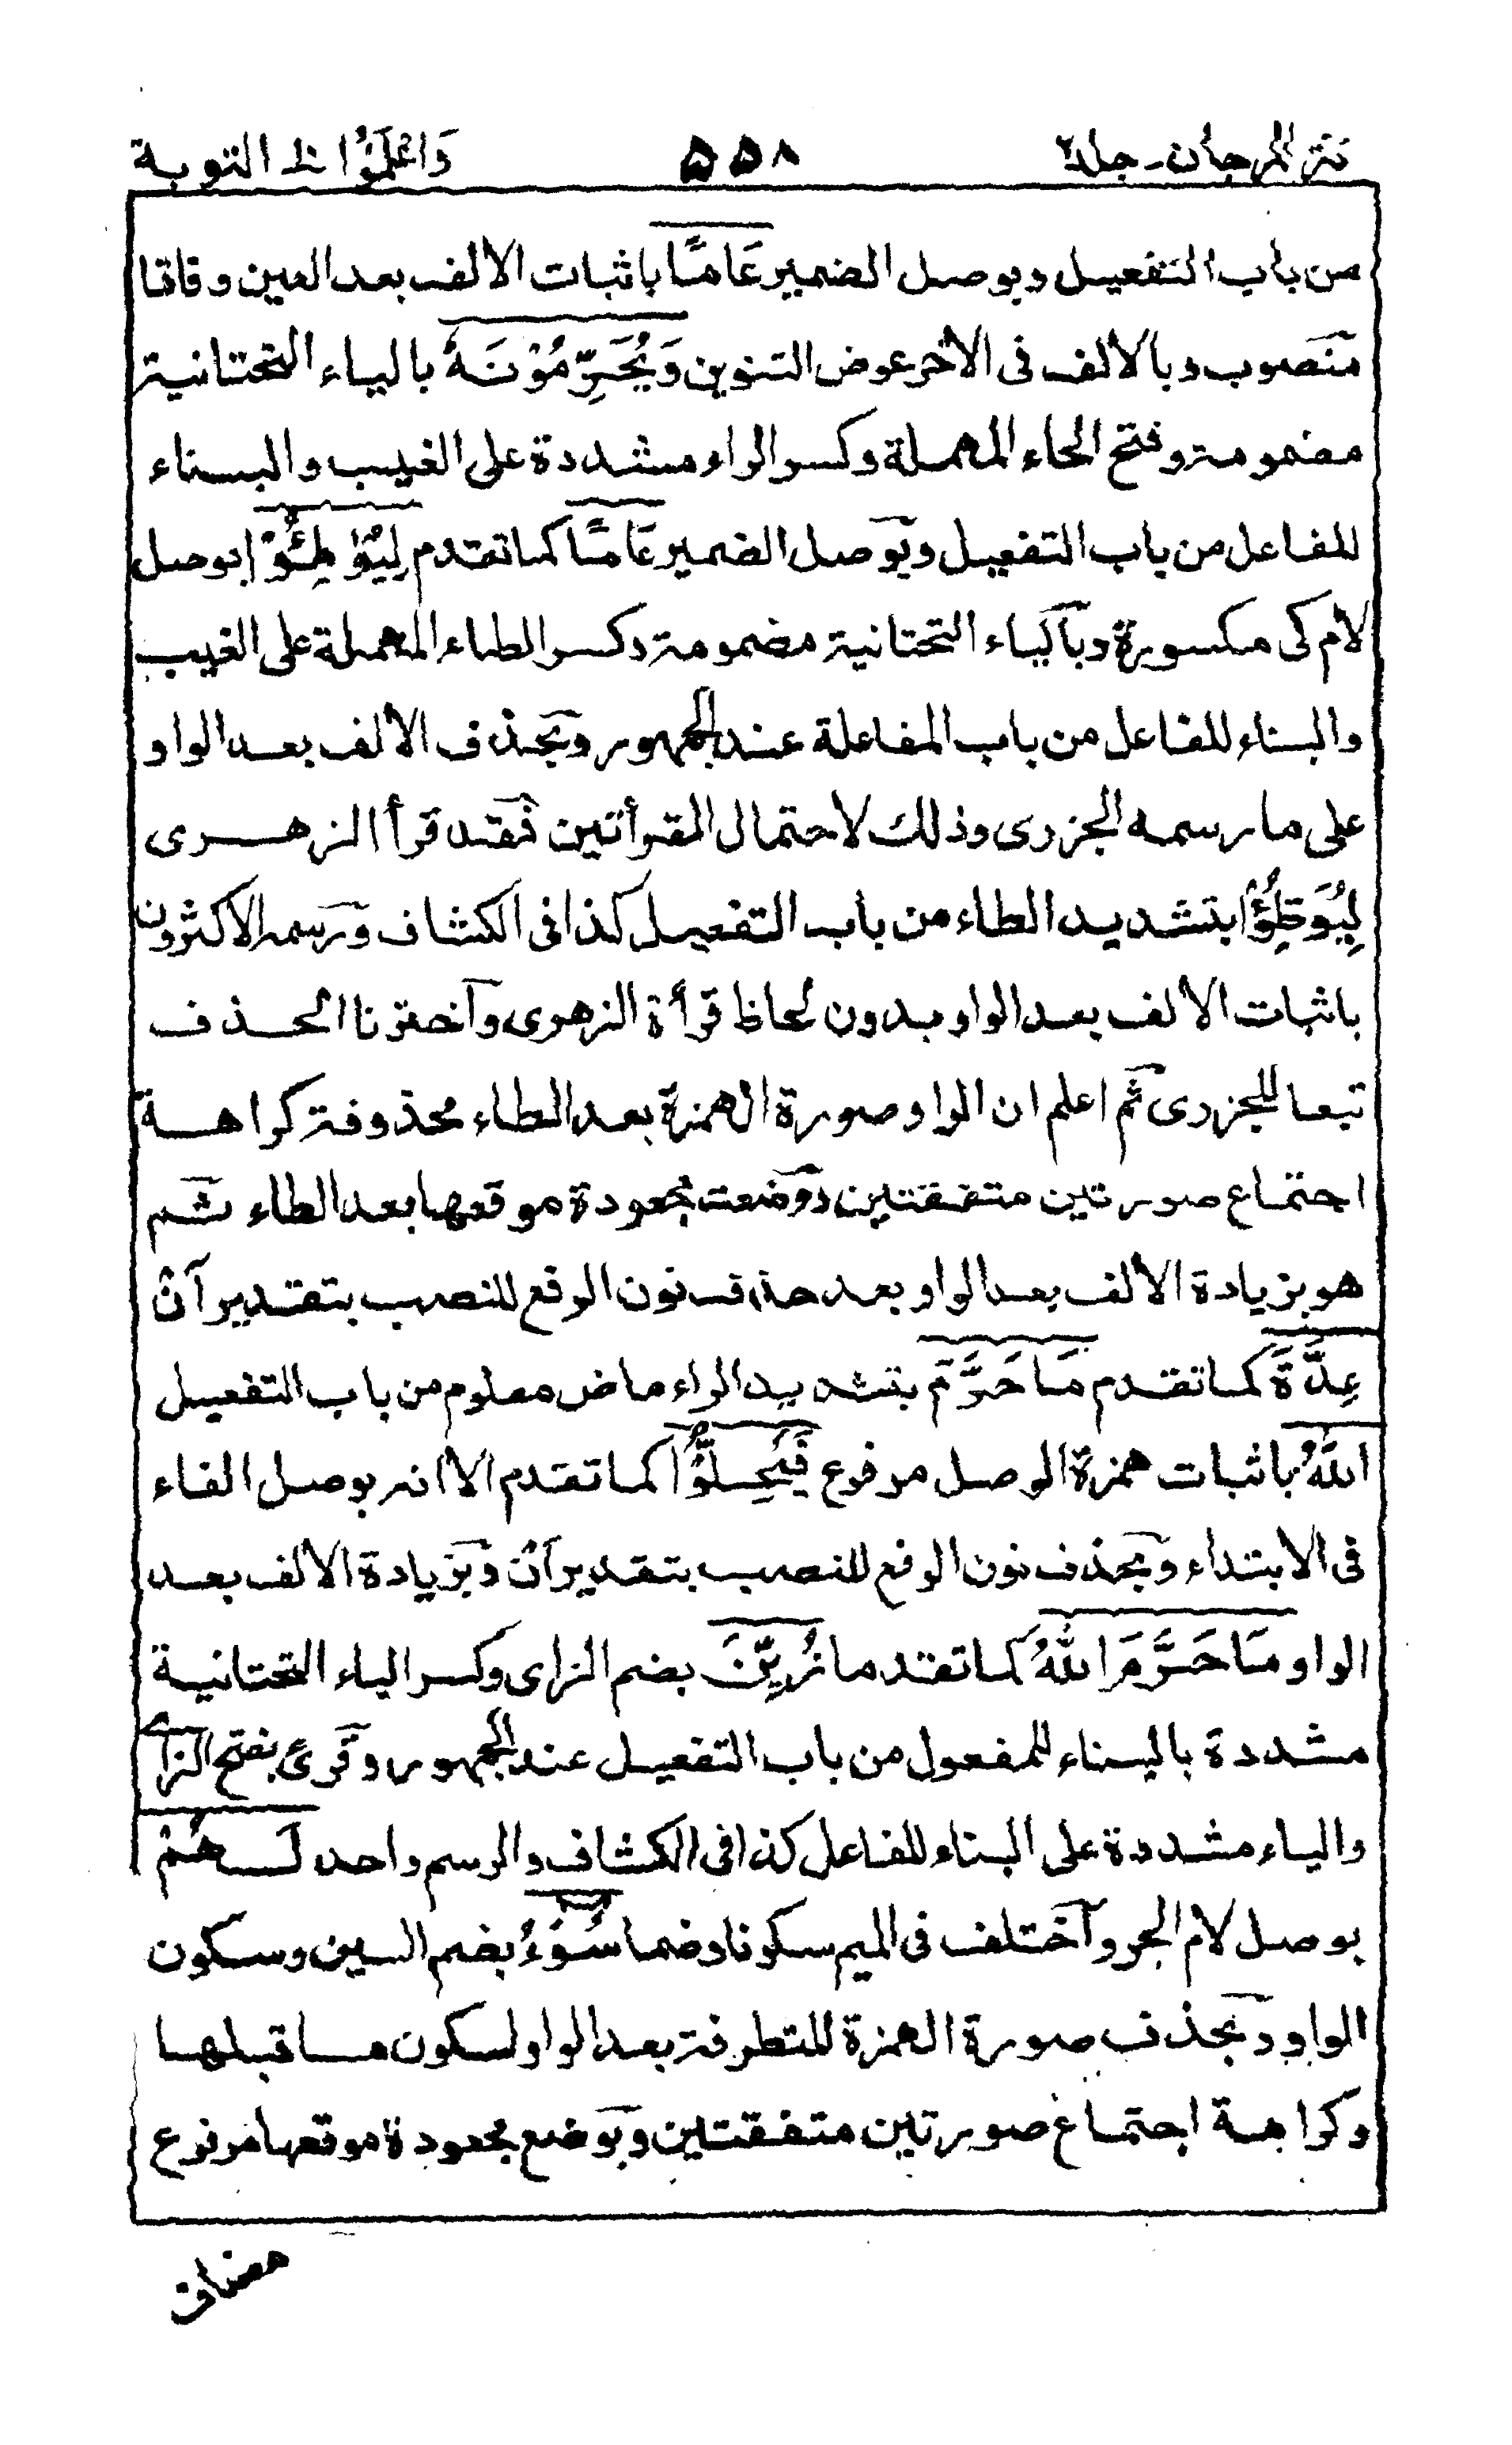 نثر المرجان۔ جلد۲
۵۵۸
وَاعْلَمُوْا ۱۰ التوبة
من باب التفعيل وبوصل الضمير عَامًا باثبات الالف بعد العين وفاقا
منصوب وبالالف فى الأخر عوض التنوين وَيُحَرِّمُوْنَهٗ بالياء التحتانية
مضمومة وفتح الحاء المهملة وكسر الراء مشددة على الغيب والبناء
للفاعل من باب التفعيل وبوصل الضمير عَامًا كما تقدم لِيُوٰطِـُٔوْا بوصل
لام كى مكسورة وبالياء التحتانية مضمومة وكسر الطاء المهملة على الغيب
والبناء للفاعل من باب المفاعلة عند الجمهور وبحذف الالف بعد الواو
على ما رسمه الجزرى وذلك لاحتمال القرأتين فقد قرأ الزهرى
لِيُوَطِّئُوْا بتشديد الطاء من باب التفعيل كذا فى الكشاف ورسمه الاكثرون
باثبات الالف بعد الواو بدون لحاظ قرأة الزهرى وآخترنا الحذف
تبعا للجزرى ثم اعلم ان الواو صورة الهمزة بعد الطاء محذوفة كراهة
اجتماع صورتين متفقتين ووضعت مجعودة موقعها بعد الطاء ثم
هو بزيادة الالف بعد الواو بعد حذف نون الرفع للنصب بتقدير آنْ
عِدَّةَ كما تقدم مَا حَرَّمَ بتشديد الراء ماض معلوم من باب التفعيل
اللّٰهُ باثبات همزة الوصل مرفوع فَيُحِلُّوْا كما تقدم الا انه بوصل الفاء
فى الابتداء وبحذف نون الرفع للنصب بتقدير آن وبزيادة الالف بعد
الواو مَا حَرَّمَ اللّٰهُ كما تقدم زُيِّنَ بضم الزاى وكسر الياء التحتانية
مشددة بالبناء للمفعول من باب التفعيل عند الجمهور وقرئ بفتح الزا
والياء مشددة على البناء للفاعل كذا فى الكشاف والرسم واحد لَهُمْ
بوصل لام الجر وآختلف فى الميم سكونا وضما سُوْٓءُ بضم السين وسكون
الواو وبحذف صورة الهمزة المتطرفة بعد الواو لسكون ما قبلها
وكراهة اجتماع صورتين متفقتين وبوضع مجعودة موقعها مرفوع
مضاف